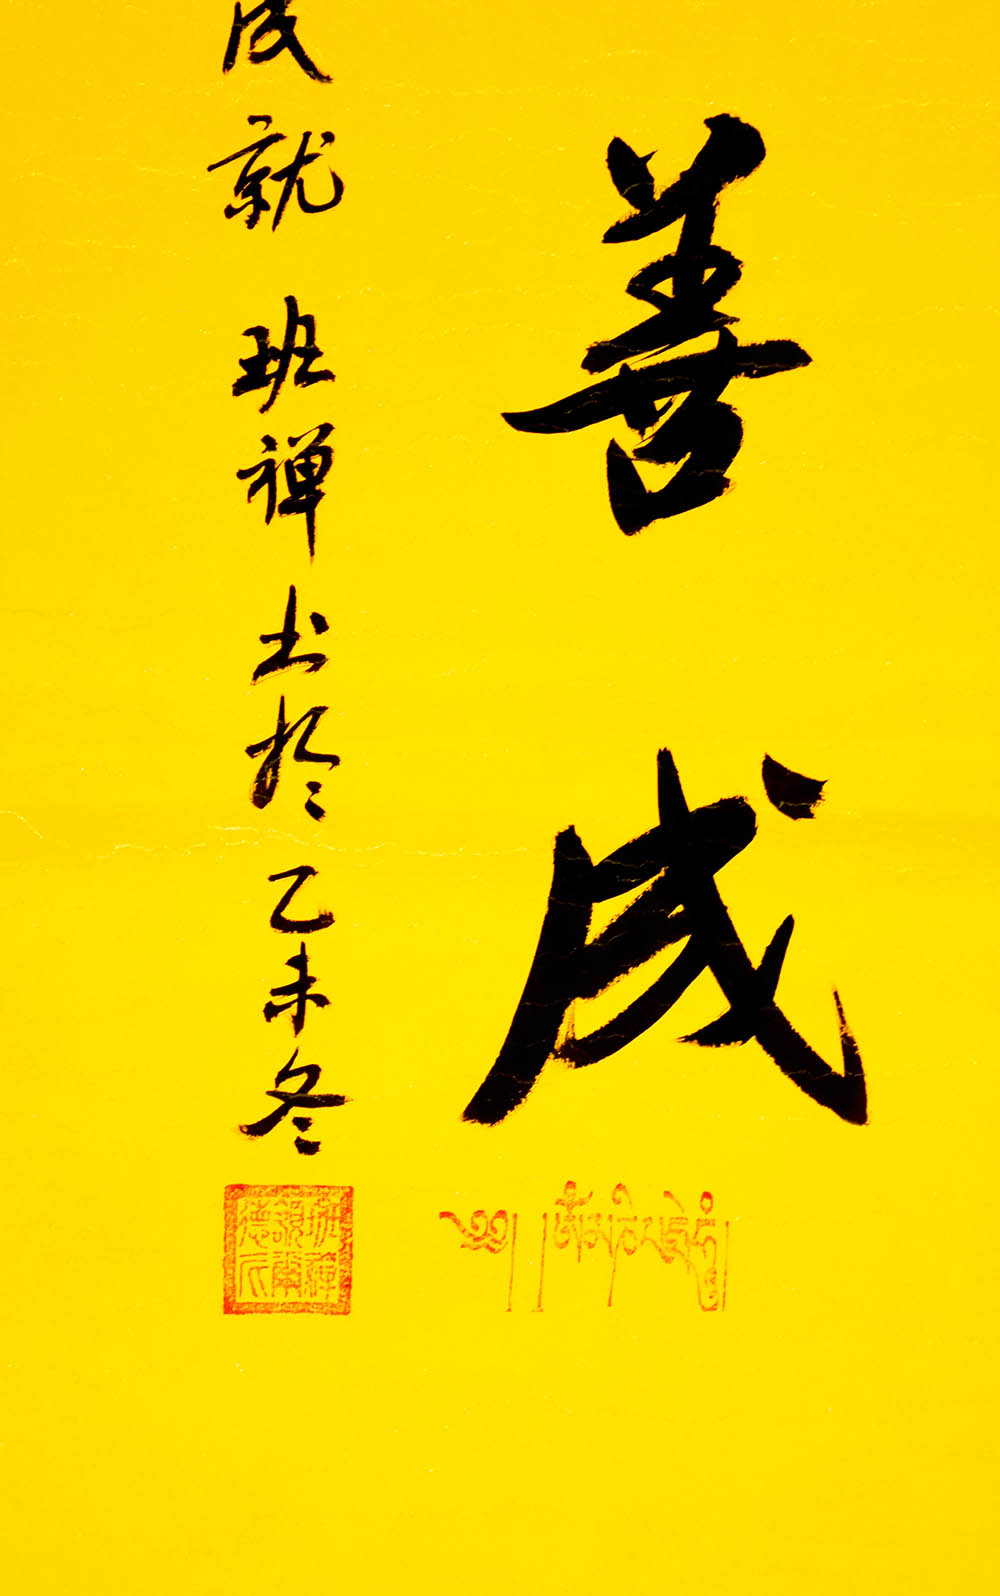 善成
成就 班禅书於乙未冬
༄༅། །ཨོཾ་མ་ཎི་པདྨེ་ཧཱུྃ།
班禪
額爾
德尼